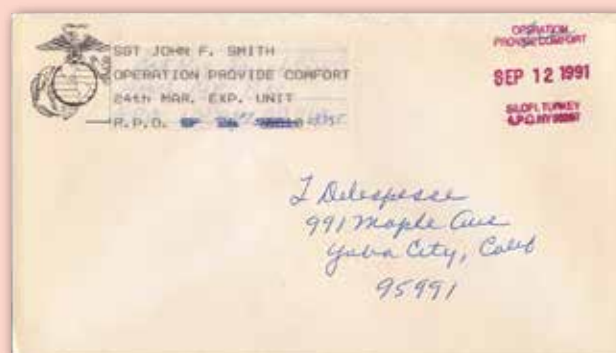 SGT JOHN F. SMITH
OPERATION PROVIDE COMFORT
24th MAR. EXP. UNIT
F.P.O.
OPERATION
PROVIDE COMFORT
SEP 12 1991
SILOPI, TURKEY
A.P.O. NY
991 Maple Ave
Yuba City, Calif
95991